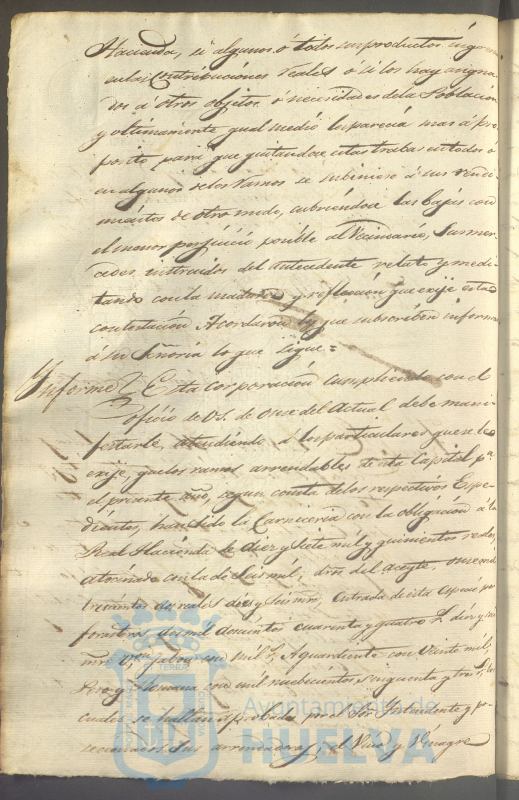 Hacienda, si algunos ó todos sus productos ingresan
en las Contribuciones reales ó si los hay asigna
dos á otros objetos ó necesidades de la Poblacion
y ultimamente qual medio les parecia mas á pro
posito para que quitandose estas trabas en todos ó
en algunos de los Ramos se subiniese á sus rendi
mientos de otro modo, cubriendose las bajas con
el menor perjuicio posible al Vecindario, Sus mer
cedes instruidos del antecedente relato y medi
tando con la madurez y reflexion que exije esta
contestacion Acordaron los que subscriben informar
á su Señoria lo que sigue =
Informe Esta Corporacion cumpliendo con el
oficio de V.S. de Once del Actual debe mani
festarle, atendiendo á los particulares que se le
exije, que los ramos arrendables de esta Capital pa
el presente año, segun consta de los respectivos Espe
dientes, han sido la Carniceria con la obligacion á la
Real Hacienda de diez y siete mil y quinientos reales,
atocinado con la de Seis mil; dros del aceyte once mil
trescientos dos reales diez y seis mrs, entrada de esta especie por
forasteros dos mil doscientos cuarenta y quatro
mrs jabon con mil Aguardiente con Veinte mil,
Peso y Romana con mil nuebecientos cinquenta y tres
cuales se hallan aprobados por el Sor Intendente y po
secionados sus arrendadores; el Vino y Vinagre
Ayuntamiento de
HUELVA